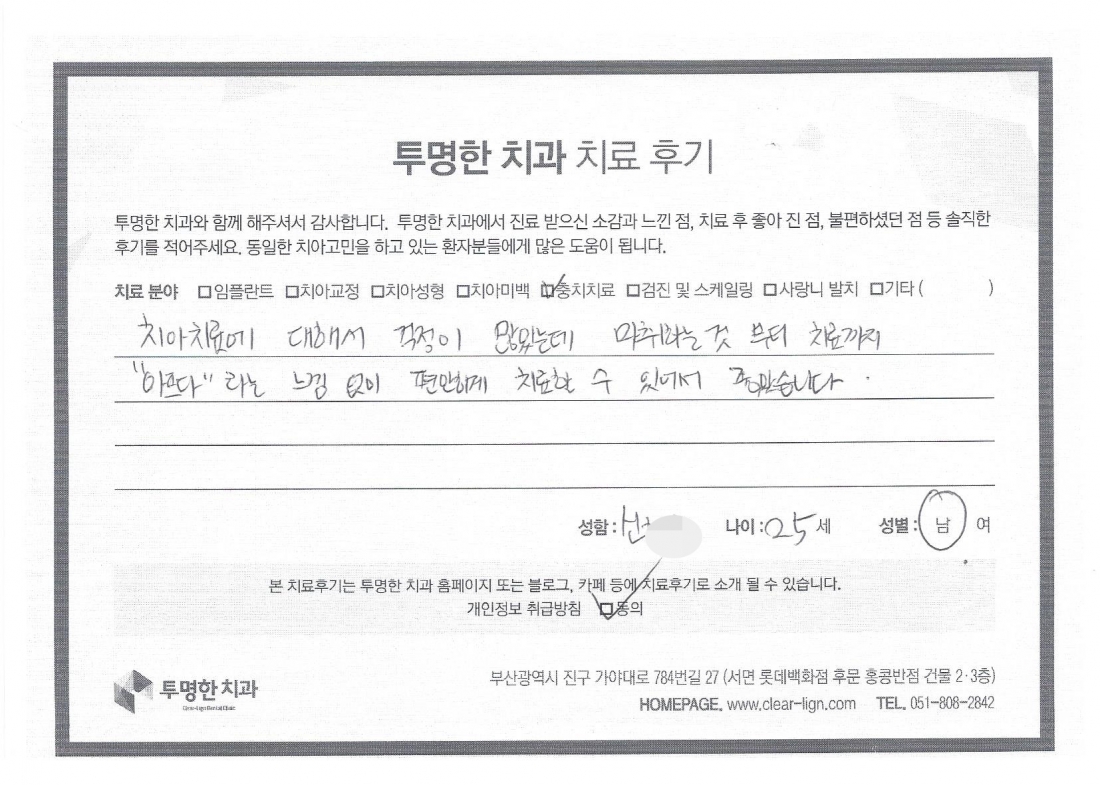 투명한 치과 치료 후기
투명한 치과와 함께 해주셔서 감사합니다. 투명한 치과에서 진료 받으신 소감과 느낀 점, 치료 후 좋아 진 점, 불편하셨던 점 등 솔직한
후기를 적어주세요. 동일한 치아고민을 하고 있는 환자분들에게 많은 도움이 됩니다.
치료 분야 □임플란트 □치아교정 □치아성형 □치아미백 ☑충치치료 □검진 및 스케일링 □사랑니 발치 □기타 ( )
치아치료에 대해서 걱정이 많았는데 마취하는것 부터 치료까지
"아프다" 라는 느낌 없이 편안하게 치료할 수 있어서 좋았습니다.
성함: 나이:25세 성별: 남 여
본 치료후기는 투명한 치과 홈페이지 또는 블로그, 카페 등에 치료후기로 소개 될 수 있습니다.
개인정보 취급방침 ☑동의
투명한 치과
Clear-lign Dental Clinic
부산광역시 진구 가야대로 784번길 27 (서면 롯데백화점 후문 홍콩반점 건물 2·3층)
HOMEPAGE. www.clear-lign.com TEL. 051-808-2842